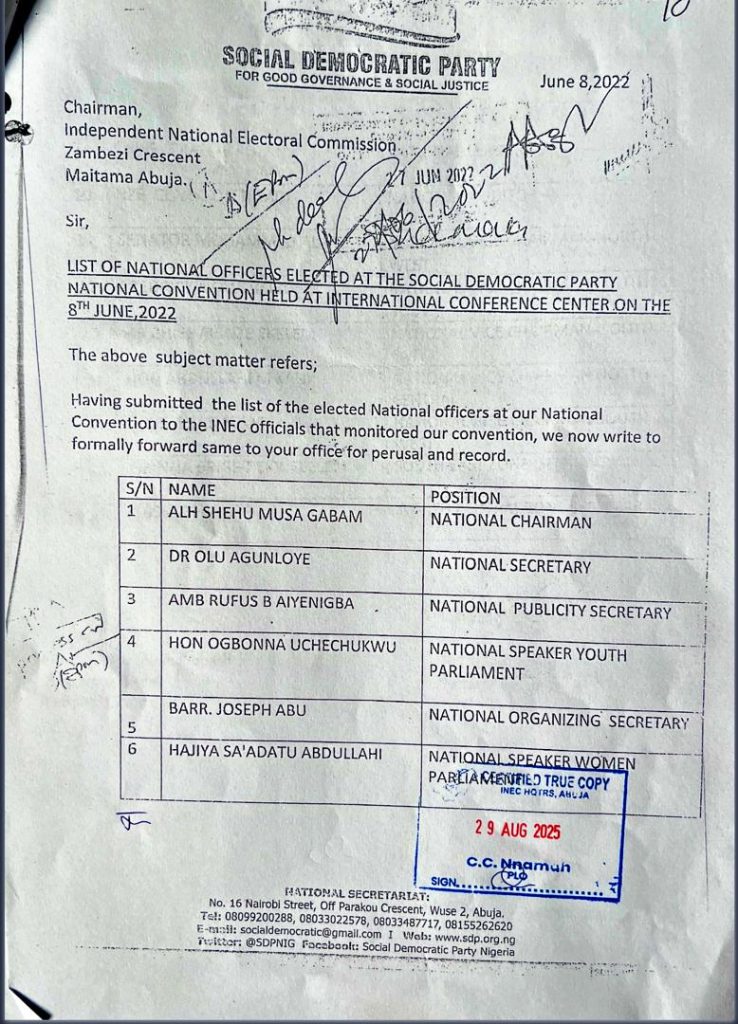 SOCIAL DEMOCRATIC PARTY
FOR GOOD GOVERNANCE & SOCIAL JUSTICE
June 8,2022
Chairman,
Independent National Electoral Commission
Zambezi Crescent
Maitama Abuja.
(EPM)
27 JUN 2022
Sir,
LIST OF NATIONAL OFFICERS ELECTED AT THE SOCIAL DEMOCRATIC PARTY
NATIONAL CONVENTION HELD AT INTERNATIONAL CONFERENCE CENTER ON THE
8TH JUNE,2022
The above subject matter refers;
Having submitted the list of the elected National officers at our National
Convention to the INEC officials that monitored our convention, we now write to
formally forward same to your office for perusal and record.
S/N NAME POSITION
1 ALH SHEHU MUSA GABAM NATIONAL CHAIRMAN
2 DR OLU AGUNLOYE NATIONAL SECRETARY
3 AMB RUFUS B AIYENIGBA NATIONAL PUBLICITY SECRETARY
4 HON OGBONNA UCHECHUKWU NATIONAL SPEAKER YOUTH
PARLIAMENT
5 BARR. JOSEPH ABU NATIONAL ORGANIZING SECRETARY
6 HAJIYA SA'ADATU ABDULLAHI NATIONAL SPEAKER WOMEN
PARLIAMENT
(EPM)
CERTIFIED TRUE COPY
INEC HQTRS, ABUJA
29 AUG 2025
C.C. Nnamuh
PLO
SIGN
NATIONAL SECRETARIAT:
No. 16 Nairobi Street, Off Parakou Crescent, Wuse 2, Abuja.
Tel: 08099200288, 08033022578, 08033487717, 08155262620
E-mail: socialdemocratic@gmail.com I Web: www.sdp.org.ng
Twitter: @SDPNIG Facebook: Social Democratic Party Nigeria